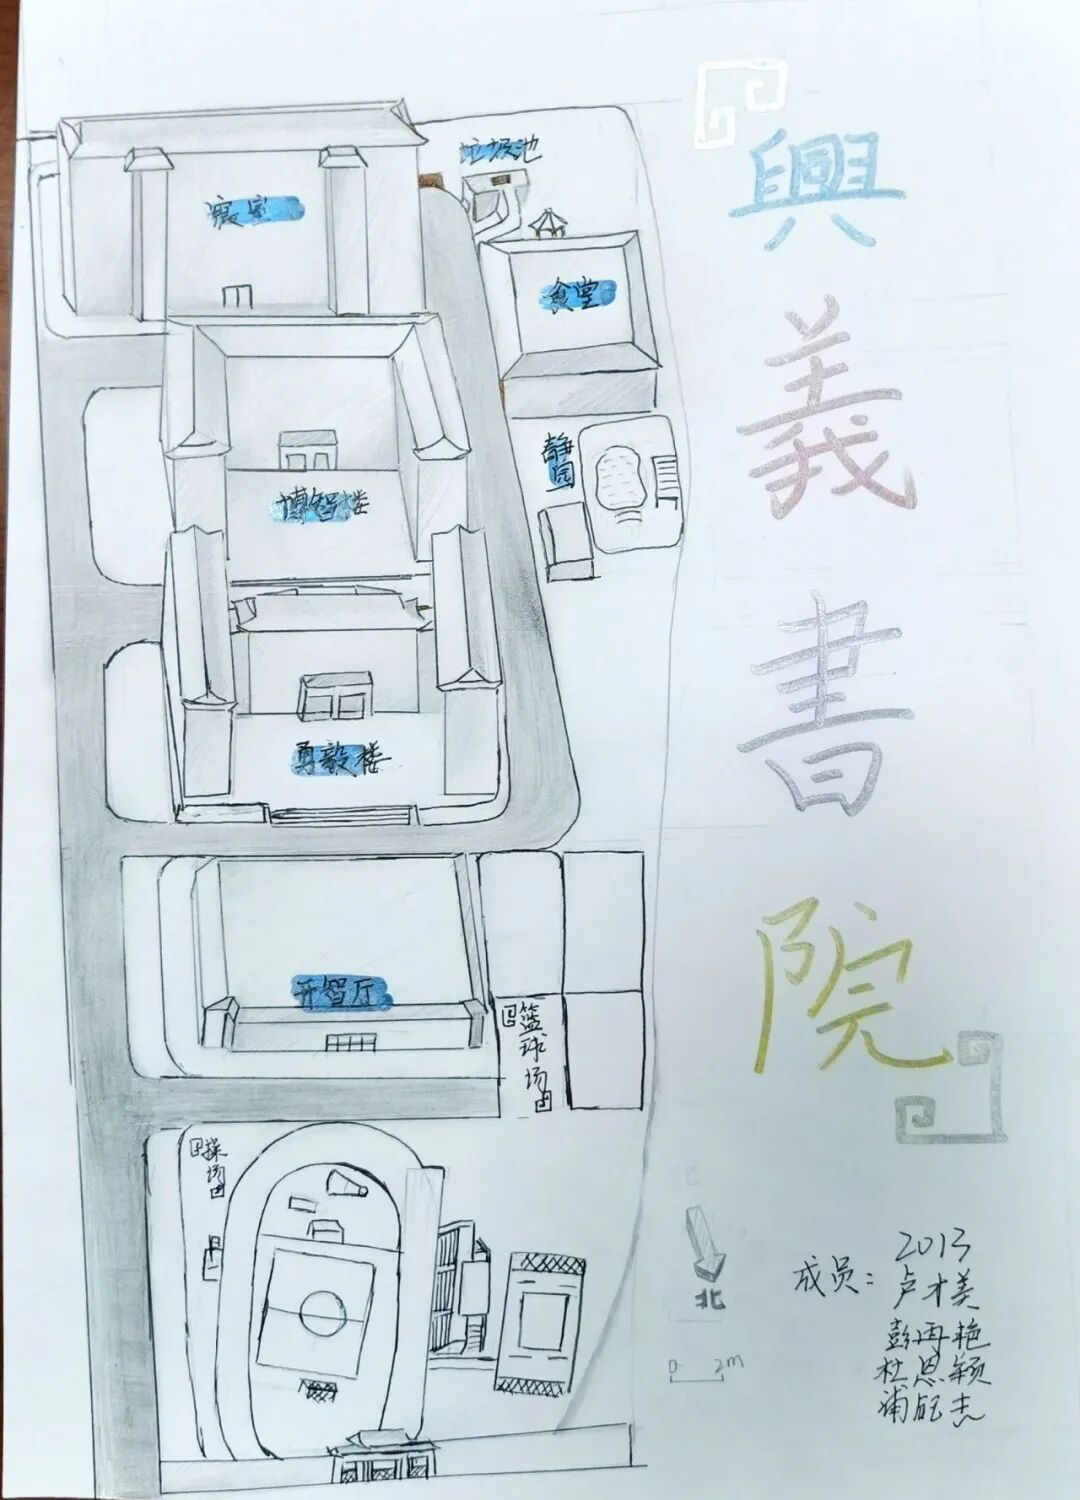 興義書院
垃圾池
寝室
食堂
静园
博智楼
勇毅楼
开智厅
篮球场
操场
北
0 2m
2013
成员：卢才美
彭再艳
杜恩颖